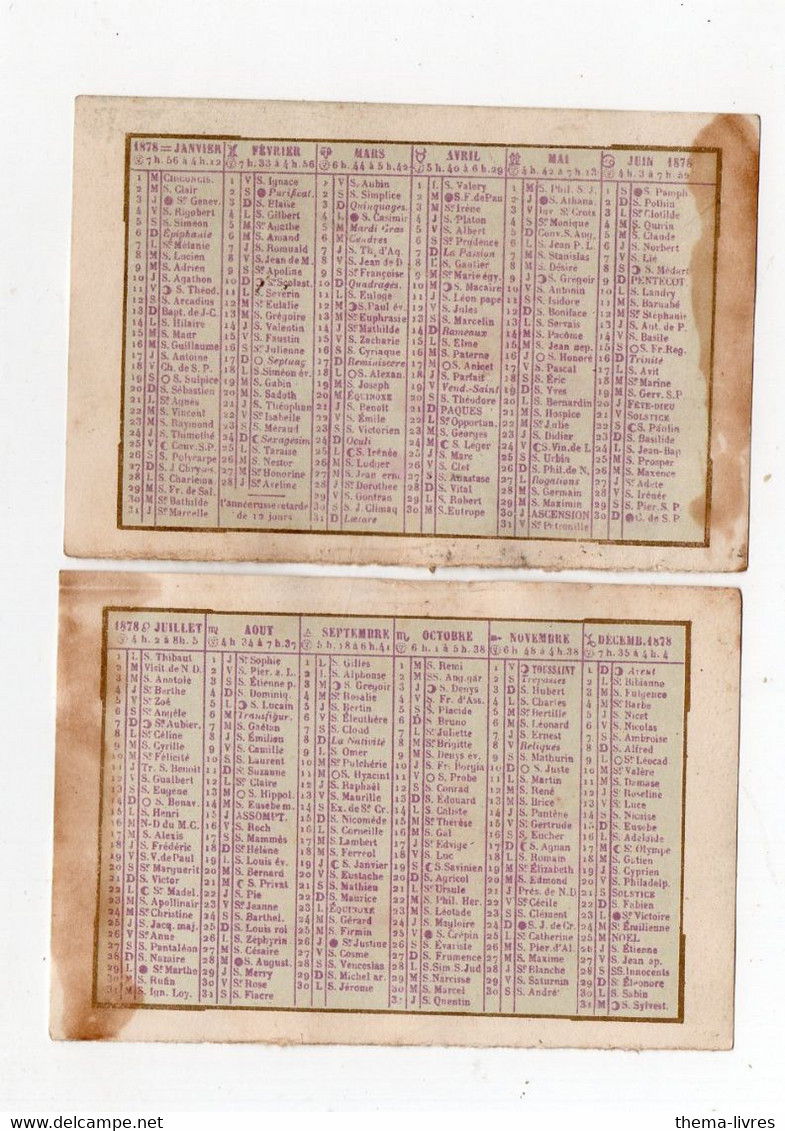 1878 = JANVIER
7 h. 56 à 4 h. 12
1 M CIRCONCIS.
2 M S. Clair
3 J S. Genev.
4 V S. Rigobert
5 S S. Siméon
6 D Épiphanie
7 L Sᵗ Mélanie
8 M S. Lucien
9 M S. Adrien
10 J S. Agathon
11 V S. Théod.
12 S S. Arcadius
13 D Bapt. de J-C.
14 L S. Hilaire
15 M S. Maur
16 M S. Guillaume
17 J S. Antoine
18 V Ch. de S. P.
19 S S. Sulpice
20 D S. Sébastien
21 L Sᵗ Agnès
22 M S. Vincent
23 M S. Raymond
24 J S. Thimothé
25 V Conv. S.P.
26 S S. Polycarpe
27 D S. J. Chrysos.
28 L S. Charlema.
29 M S. Fr. de Sal.
30 M Sᵗ Bathilde
31 J Sᵗ Marcelle
FÉVRIER
7 h. 33 à 4 h. 56
1 V S. Ignace
2 S Purificat.
3 D S. Blaise
4 L S. Gilbert
5 M Sᵗ Agathe
6 M S. Amand
7 J S. Romuald
8 V S. Jean de M.
9 S Sᵗ Apoline
10 D Sᵗ Scolast.
11 L S. Séverin
12 M Sᵗ Eulalie
13 M S. Grégoire
14 J S. Valentin
15 V S. Faustin
16 S Sᵗ Julienne
17 D Septuag
18 L S. Siméon év.
19 M S. Gabin
20 M S. Sadoth
21 J S. Théophium
22 V Sᵗ Isabelle
23 S S. Méraud
24 D Sexagésim
25 L S. Taraise
26 M S. Nestor
27 M Sᵗ Honorine
28 J Sᵗ Aveline
l'année russe retarde
de 12 jours
MARS
6 h. 44 à 5 h. 42
1 V S. Aubin
2 S S. Simplice
3 D Quinquages.
4 L S. Casimir
5 M Mardi Gras
6 M Cendres
7 J S. Th. d'Aq.
8 V S. Jean de D.
9 S Sᵗ Françoise
10 D Quadragés.
11 L S. Euloge
12 M S. Paul év.
13 M Sᵗ Euphrasie
14 J Sᵗ Mathilde
15 V S. Zacharie
16 S S. Cyriaque
17 D Reminiscere
18 L S. Alexan.
19 M S. Joseph
20 M ÉQUINOXE
21 J S. Benoit
22 V S. Émile
23 S S. Victorien
24 D Oculi
25 L S. Irénée
26 M S. Ludger
27 M S. Jean erm.
28 J Sᵗ Dorothée
29 V S. Gontran
30 S S. J. Climaq
31 D Lætare
AVRIL
5 h. 40 à 6 h. 29
1 L S. Valery
2 M S. F. de Pau
3 M Sᵗ Irène
4 J S. Platon
5 V S. Albert
6 S Sᵗ Prudence
7 D La Passion
8 L S. Gautier
9 M Sᵗ Marie égy.
10 M S. Macaire
11 J S. Léon pape
12 V S. Jules
13 S S. Marcelin
14 D Rameaux
15 L S. Elme
16 M S. Paterne
17 M S. Anicet
18 J S. Parfait
19 V Vend.-Saint
20 S S. Théodore
21 D PAQUES
22 L Sᵗ Opportun.
23 M S. Georges
24 M S. Léger
25 J S. Marc
26 V S. Clet
27 S S. Anastase
28 D S. Vital
29 L S. Robert
30 M S. Eutrope
MAI
4 h. 42 à 7 h. 13
1 M S. Phil. S. J.
2 J S. Athana.
3 V Inv Sᵗ Crois
4 S Sᵗ Monique
5 D Conv. S. Aug.
6 L S. Jean P. L.
7 M S. Stanislas
8 M S. Désiré
9 J S. Grégoir
10 V S. Antonin
11 S S. Isidore
12 D S. Boniface
13 L S. Servais
14 M S. Pacôme
15 M S. Jean nép.
16 J S. Honoré
17 V S. Pascal
18 S S. Éric
19 D S. Yves
20 L S. Bernardin
21 M S. Hospice
22 M Sᵗ Julie
23 J S. Didier
24 V S. Vin. de L
25 S S. Urbin
26 D S. Phil. de N.
27 L Rogations
28 M S. Germain
29 M S. Maximin
30 J ASCENSION
31 V Sᵗ Pétronille
JUIN 1878
4 h. 3 à 7 h. 52
1 S S. Pamph
2 D S. Pothin
3 L Sᵗ Clotilde
4 M S. Quirin
5 M S. Claude
6 J S. Norbert
7 V S. Lié
8 S S. Médart
9 D PENTECOT.
10 L S. Landry
11 M S. Barnabé
12 M Sᵗ Stéphanie
13 J S. Ant. de P.
14 V S. Basile
15 S S. Fr. Reg.
16 D Trinité
17 L S. Avit
18 M Sᵗ Marine
19 M S. Gerv. S.P.
20 J FÊTE-DIEU
21 V SOLSTICE
22 S S. Paulin
23 D S. Basilide
24 L S. Jean-Bap
25 M S. Prosper
26 M S. Maxence
27 J Sᵗ Adèle
28 V S. Irénée
29 S S. Pier. S. P.
30 D C. de S. P.
1878 JUILLET
4 h. 2 à 8 h. 5
1 L S. Thibaut
2 M Visit. de N. D.
3 M S. Anatole
4 J Sᵗ Berthe
5 V Sᵗ Zoé
6 S Sᵗ Angèle
7 D Sᵗ Aubier.
8 L Sᵗ Céline
9 M S. Cyrille
10 M Sᵗ Félicité
11 J Tr. S. Benoît
12 V S. Gualbert
13 S S. Eugène
14 D S. Bonav.
15 L S. Henri
16 M N-D du M.C.
17 M S. Alexis
18 J S. Frédéric
19 V S. V. de Paul
20 S Sᵗ Marguerit
21 D S. Victor
22 L Sᵗ Madel.
23 M S. Apollinair
24 M Sᵗ Christine
25 J S. Jacq. maj.
26 V Sᵗ Anne
27 S S. Pantaléon
28 D S. Nazaire
29 L Sᵗ Martho
30 M S. Rufin
31 M S. Ign. Loy.
AOUT
4 h 34 à 7 h. 37
1 J Sᵗ Sophie
2 V S. Pier. a. L.
3 S S. Étienne p.
4 D S. Dominiq.
5 L S. Lucain
6 M Transfigur.
7 M S. Gaëtan
8 J S. Émilien
9 V S. Camille
10 S S. Laurent
11 D S. Suzanne
12 L Sᵗ Claire
13 M S. Hippol.
14 M S. Eusebe m.
15 J ASSOMPT.
16 V S. Roch
17 S S. Mammès
18 D Sᵗ Hélène
19 L S. Louis év.
20 M S. Bernard
21 M S. Privat
22 J S. Pie
23 V Sᵗ Jeanne
24 S S. Barthel.
25 D S. Louis roi
26 L S. Zéphyrin
27 M S. Césaire
28 M S. August.
29 J S. Merry
30 V Sᵗ Rose
31 S S. Fiacre
SEPTEMBRE
5 h. 18 à 6 h. 41
1 D S. Gilles
2 L S. Alphonse
3 M S. Grégoir
4 M Sᵗ Rosalie
5 J S. Bertin
6 V S. Éleuthère
7 S S. Cloud
8 D La Nativité
9 L S. Omer
10 M Sᵗ Pulchérie
11 M S. Hyacint
12 J S. Raphaël
13 V S. Maurille
14 S Ex. de Sᵗ Cr.
15 D S. Nicomède
16 L S. Corneille
17 M S. Lambert
18 M S. Ferréol
19 J S. Janvier
20 V S. Eustache
21 S S. Mathieu
22 D S. Maurice
23 L ÉQUINOXE
24 M S. Gérard
25 M S. Firmin
26 J Sᵗ Justine
27 V S. Cosme
28 S S. Venceslas
29 D S. Michel ar.
30 L S. Jérôme
OCTOBRE
6 h. 1 à 5 h. 38
1 M S. Remi
2 M SS. Ang. gar
3 J S. Denys
4 V S. Fr. d'Ass.
5 S S. Placide
6 D S. Bruno
7 L Sᵗ Juliette
8 M Sᵗ Brigitte
9 M S. Denys év.
10 J S. Fr. Borgia
11 V S. Probe
12 S S. Conrad
13 D S. Édouard
14 L S. Caliste
15 M Sᵗ Thérèse
16 M S. Gal
17 J Sᵗ Edvige
18 V S. Luc
19 S S. Savinien
20 D S. Agricol
21 L Sᵗ Ursule
22 M S. Phil. Her.
23 M S. Léotade
24 J S. Magloire
25 V S. Crépin
26 S S. Évariste
27 D S. Frumence
28 L S. Sim. S. Jud
29 M S. Narcisse
30 M S. Marcel
31 J S. Quentin
NOVEMBRE
6 h 48 à 4 h. 38
1 V TOUSSAINT
2 S Trépassés
3 D S. Hubert
4 L S. Charles
5 M Sᵗ Bertille
6 M S. Léonard
7 J S. Ernest
8 V Reliques
9 S S. Mathurin
10 D S. Juste
11 L S. Martin
12 M S. René
13 M S. Brice
14 J S. Pantène
15 V Sᵗ Gertrude
16 S S. Eucher
17 D S. Agnan
18 L S. Romain
19 M Sᵗ Elizabeth
20 M S. Edmond
21 J Prés. de N. D
22 V Sᵗ Cécile
23 S S. Clément
24 D S. J. de Cr.
25 L Sᵗ Catherine
26 M S. Pier. d'Al.
27 M S. Maxime
28 J Sᵗ Blanche
29 V S. Saturnin
30 S S. André
DÉCEMB. 1878
7 h. 35 à 4 h. 4
1 D Avent
2 L Sᵗ Bibianne
3 M S. Fulgence
4 M Sᵗ Barbe
5 J S. Nicet
6 V S. Nicolas
7 S S. Ambroise
8 D S. Alfred
9 L Sᵗ Léocad
10 M Sᵗ Valère
11 M S. Damase
12 J Sᵗ Roseline
13 V Sᵗ Luce
14 S S. Nicaise
15 D S. Eusèbe
16 L Sᵗ Adelaïde
17 M Sᵗ Olympe
18 M S. Gatien
19 J S. Cyprien
20 V S. Philadelp.
21 S SOLSTICE
22 D S. Fabien
23 L Sᵗ Victoire
24 M Sᵗ Émilienne
25 M NOEL
26 J S. Étienne
27 V S. Jean ap.
28 S SS. Innocents
29 D Sᵗ Éléonore
30 L S. Sabin
31 M S. Sylvest.
thema-livres